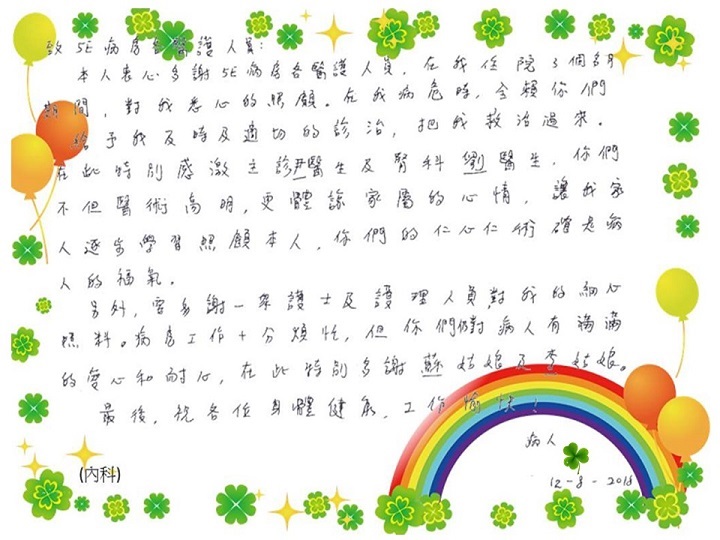 致 5E 病房各醫護人員：
本人衷心多謝 5E 病房各醫護人員，在我住院 3 個多月
期間，對我悉心的照顧。在我病危時，全賴你們
給予我及時及適切的診治，把我救治過來。
在此特別感激主診尹醫生及腎科劉醫生，你們
不但醫術高明，更體諒家屬的心情，讓我家
人逐步學習照顧本人，你們的仁心仁術確是病
人的福氣。
另外，容多謝一眾護士及護理人員對我的細心
照料。病房工作十分煩忙，但你們仍對病人有滿滿
的愛心和耐心，在此特別多謝蘇姑娘及李姑娘。
最後，祝各位身體健康，工作愉快！
病人
(內科)
12-8-2018